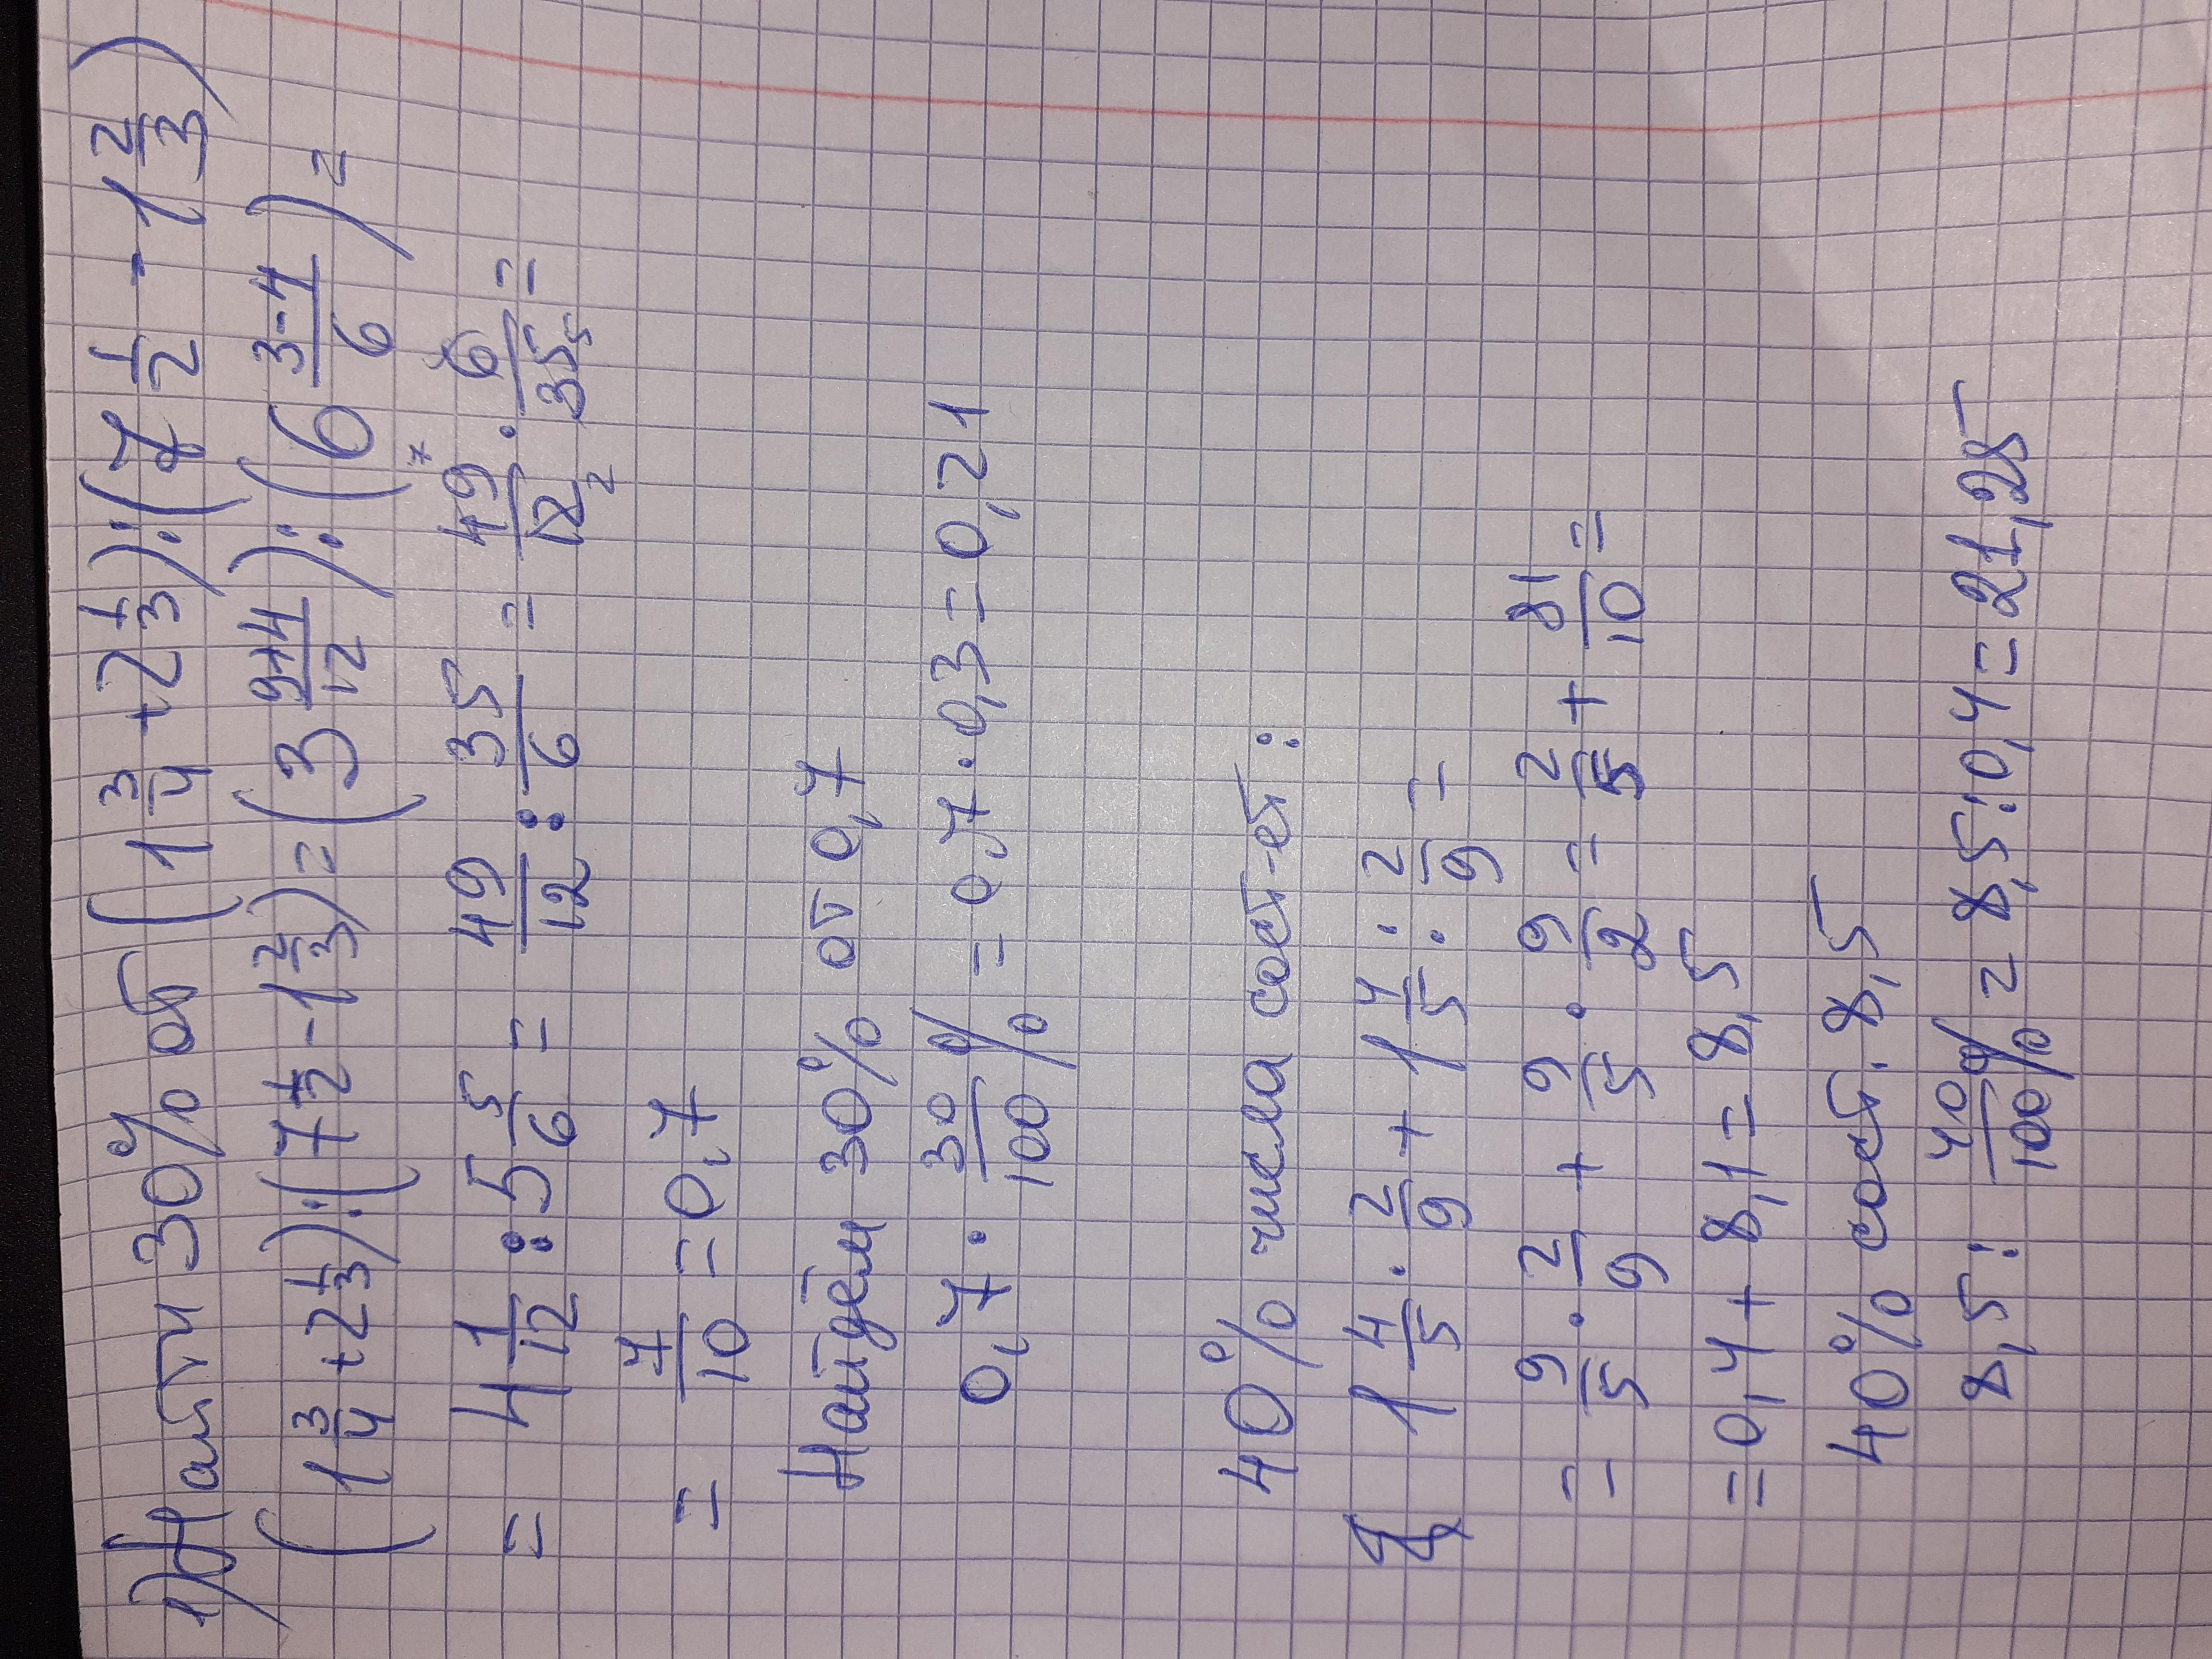 1) Найти 30% от (1 3/4 + 2 1/3) : (7 1/2 - 1 2/3)
(1 3/4 + 2 1/3) : (7 1/2 - 1 2/3) = (3 9+4/12) : (6 3-4/6) =
= 4 1/12 : 5 5/6 = 49/12 : 35/6 = 49 7/12 2 · 6/35 5 =
= 7/10 = 0,7
Найдём 30% от 0,7
0,7 · 30%/100% = 0,7 · 0,3 = 0,21
40% числа сост-ет :
1 4/5 · 2/9 + 1 4/5 : 2/9 =
= 9/5 · 2/9 + 9/5 · 9/2 = 2/5 + 81/10 =
= 0,4 + 8,1 = 8,5
40% сост. 8,5
8,5 : 40%/100% = 8,5 : 0,4 = 21,25